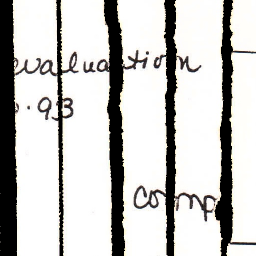 evaluation
.93
comp